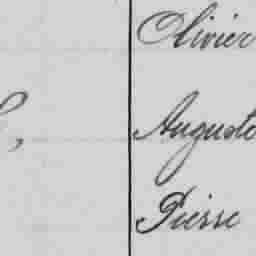 Olivier
Auguste
Pierre